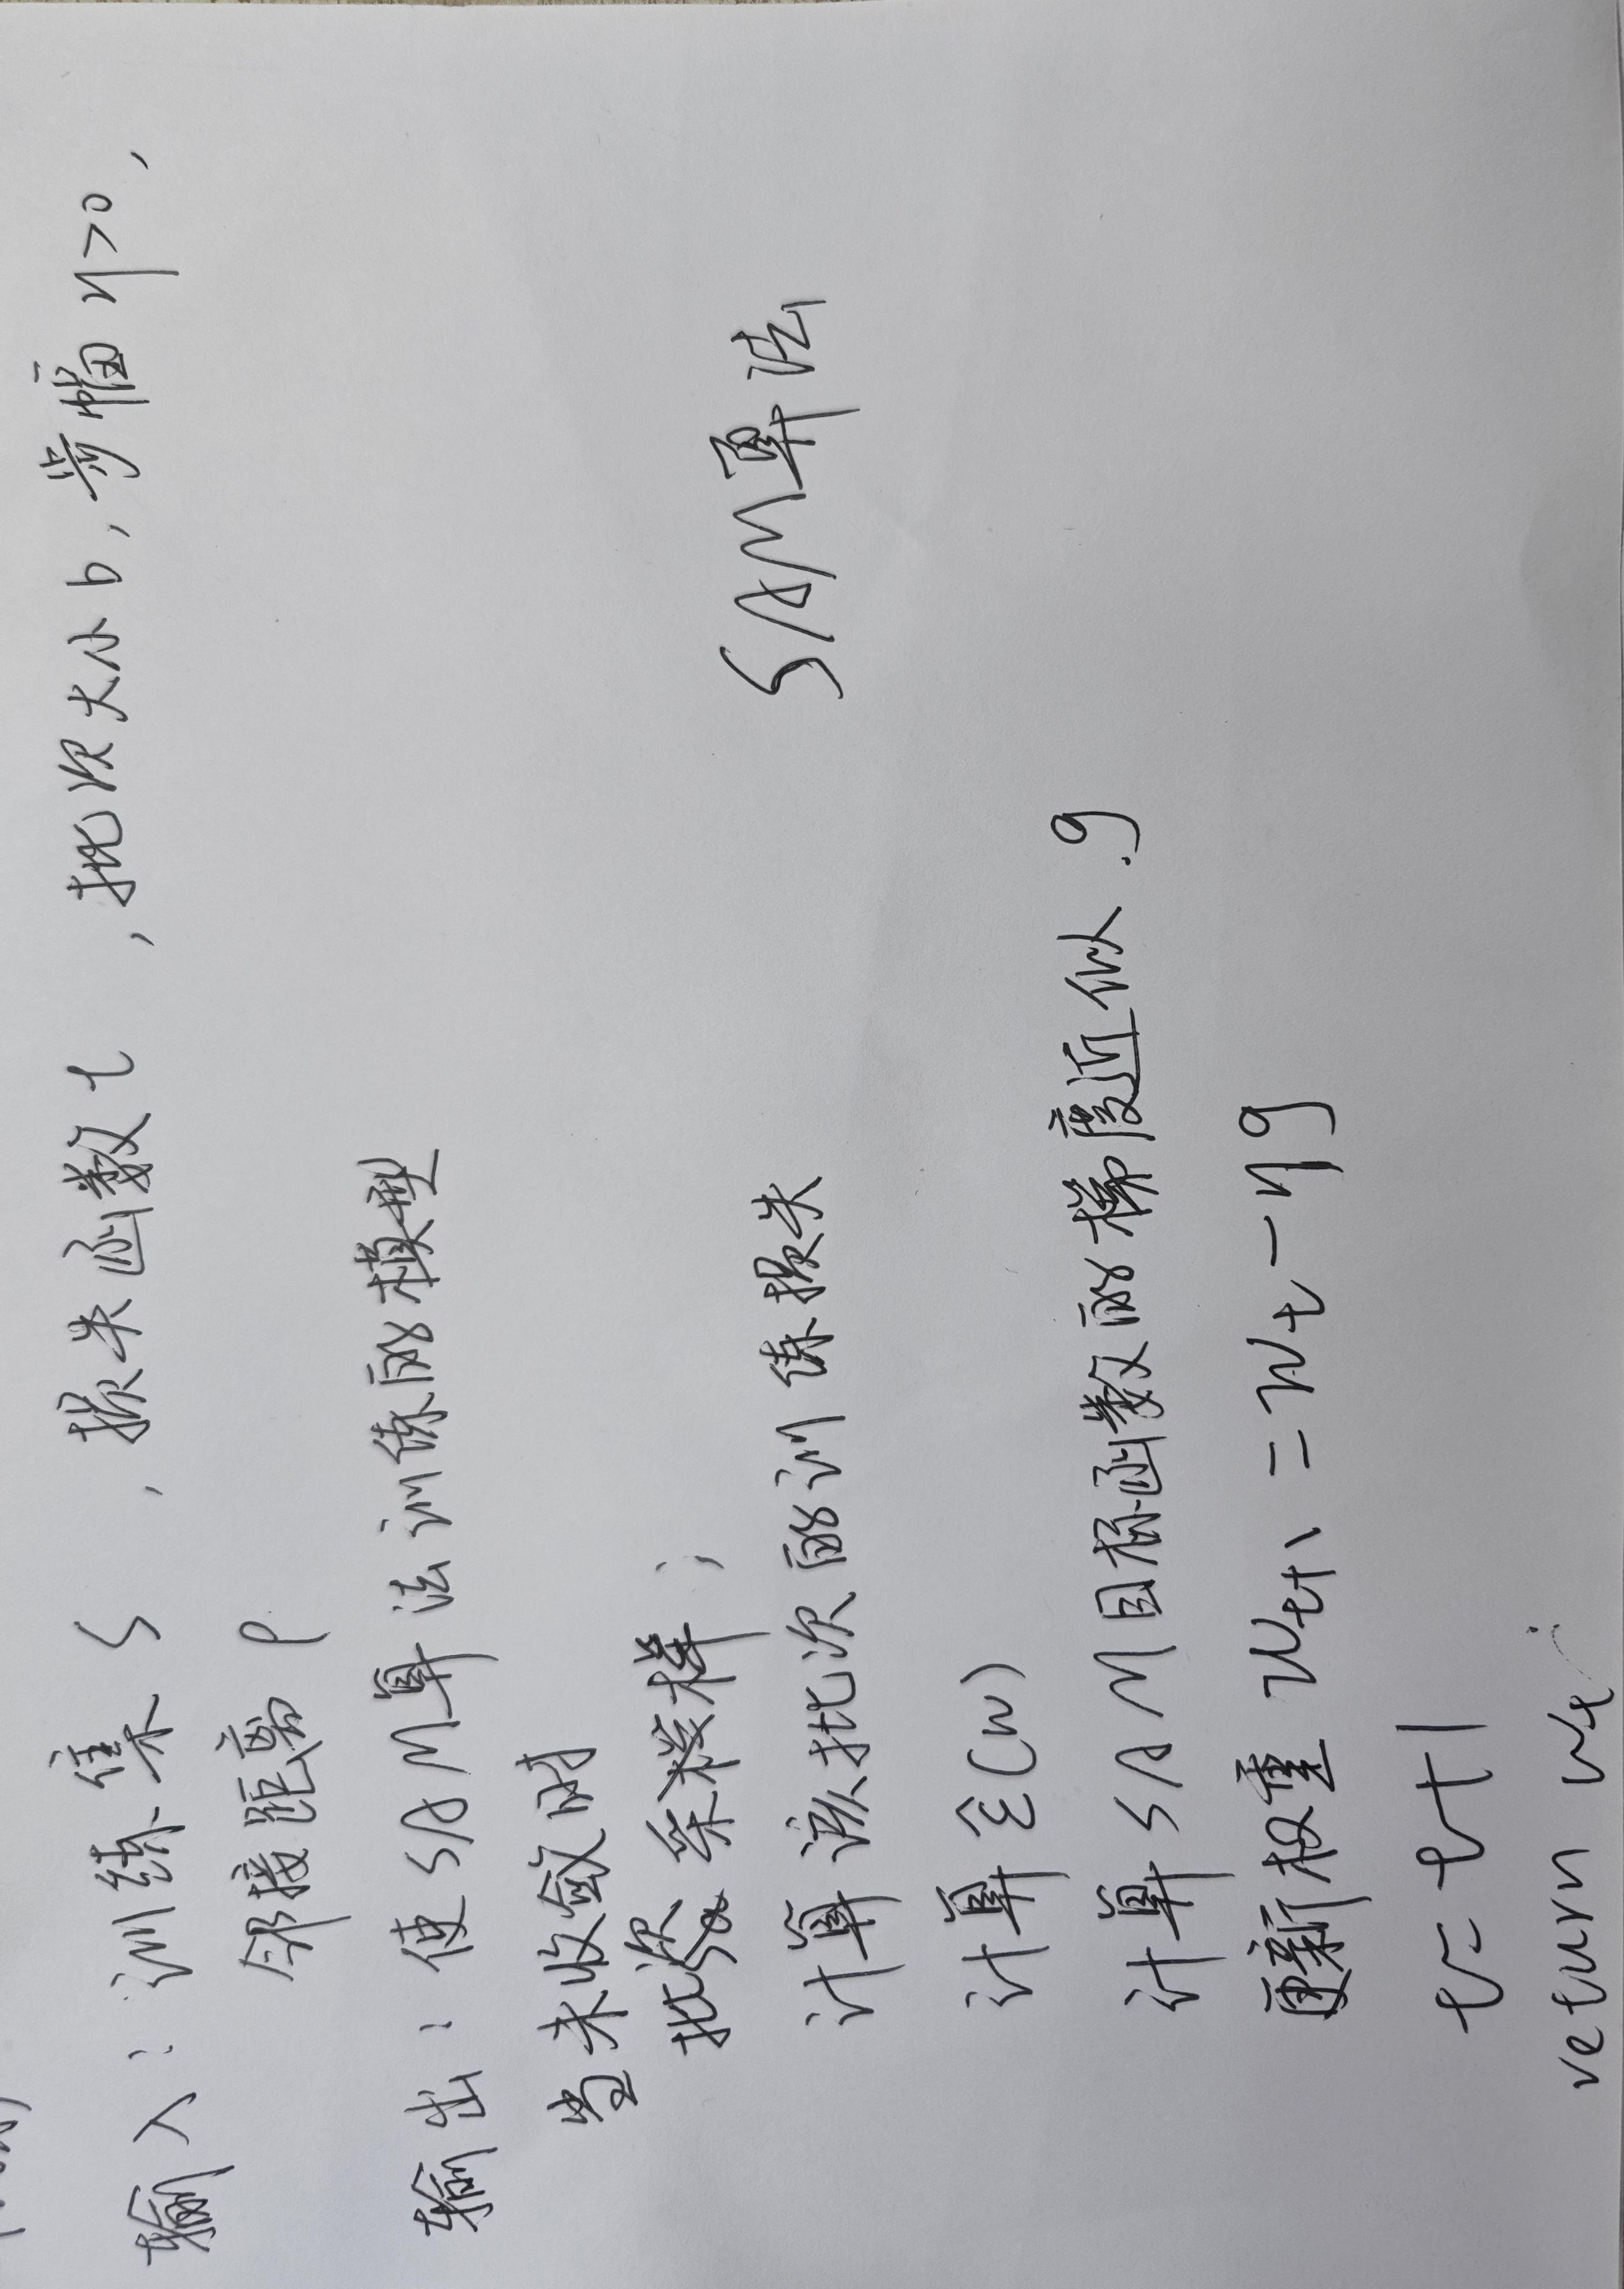 输入：训练集 S ，损失函数 l ，批限大小 b，步幅 η>0，
邻接距离 ρ
输出：使SAM算法训练的模型
当未收敛时
批次采样；
SAM算法
计算该批次的训练损失
计算 ε̂(w)
计算 SAM目标函数的梯度近似.g
更新权重 Wt+1 = Wt - ηg
t = t+1
return Wt